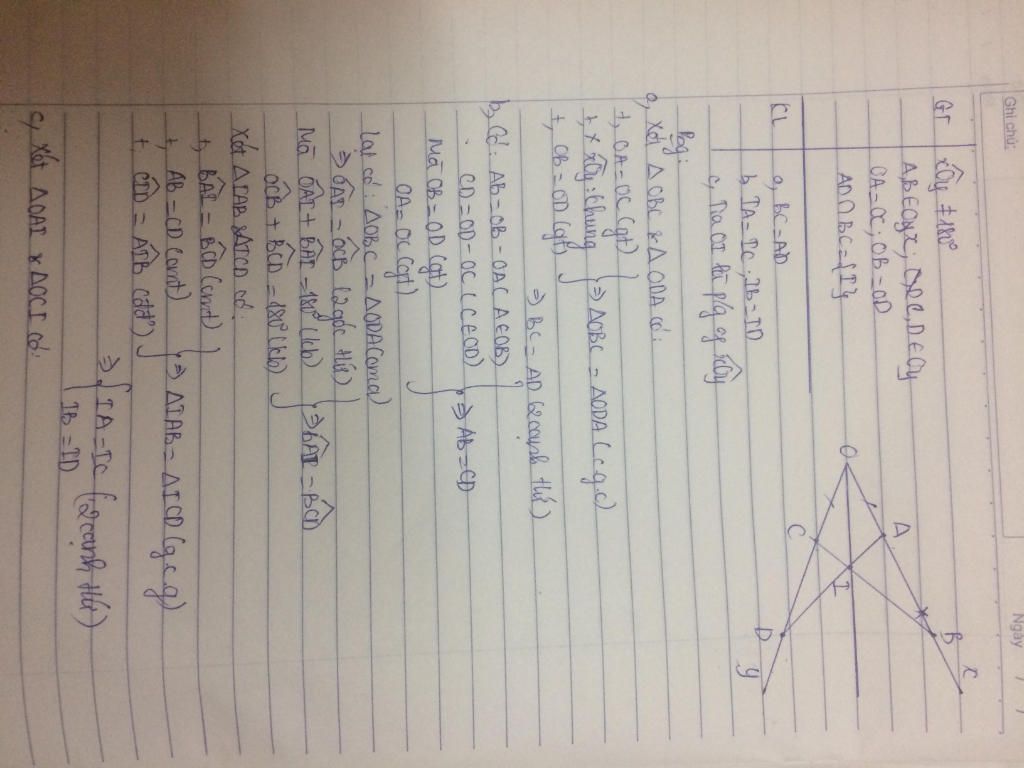 Ghi chú:
Ngày / /
GT
xOy ≠ 180°
A,B ∈ Ox; C,D ∈ Oy
OA=OC; OB=OD
AD∩BC={I}
KL
a, BC=AD
b, IA=IC; IB=ID
c, Tia OI là p/g of xOy
O
A
B
x
I
C
D
y
Bg:
a, Xét △OBC & △ODA có:
+, OA=OC (gt)
+, xOy: Chung
+, OB=OD (gt)
⇒ △OBC = △ODA (c.g.c)
⇒ BC=AD (2 cạnh t/ứ)
b, Có: AB=OB-OA (A∈OB)
CD=OD-OC (C∈OD)
Mà OB=OD (gt)
OA=OC (gt)
⇒ AB=CD
Lại có: △OBC = △ODA (cma)
⇒ OAI = OCB (2 góc t/ứ)
Mà OAI + BAI = 180° (kb)
OCB + BCD = 180° (kb)
⇒ BAI = BCD
Xét △IAB & △ICD có:
+, BAI = BCD (cmt)
+, AB=CD (cmt)
+, CID = AIB (đđ)
⇒ △IAB = △ICD (g.c.g)
⇒ { IA=IC
IB=ID (2 cạnh t/ứ)
c, Xét △OAI & △OCI có: